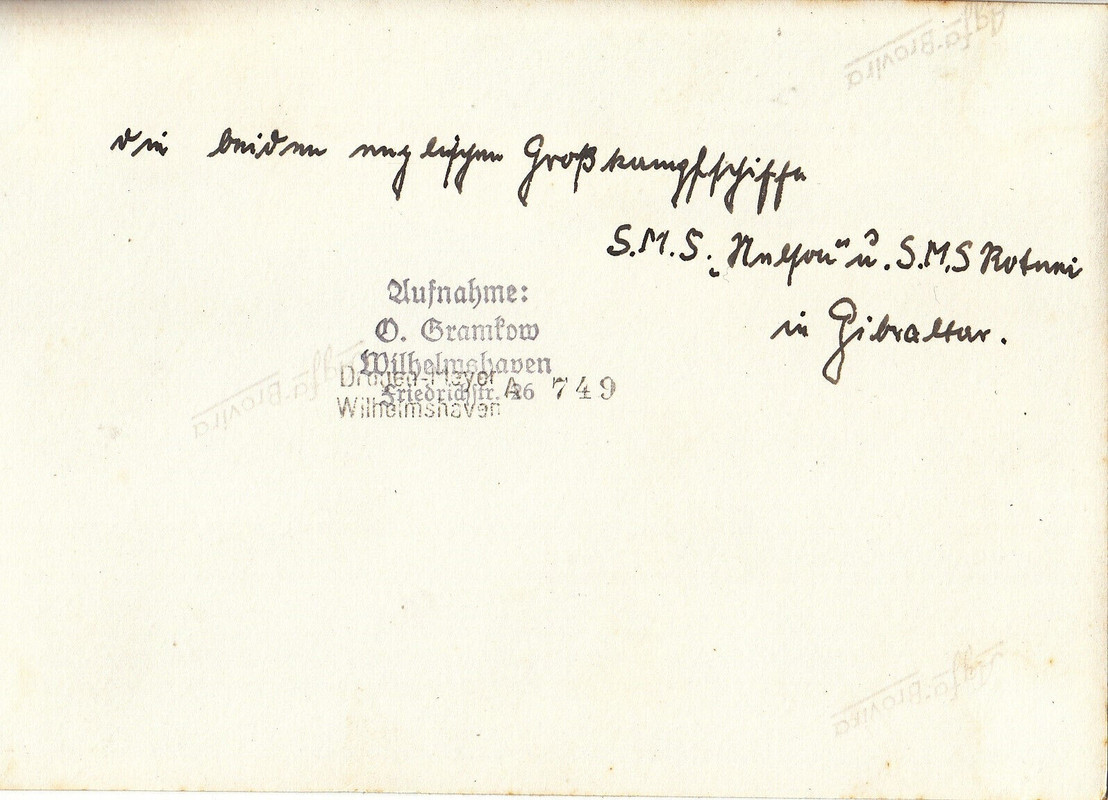 Agfa-Brovira
die beiden englischen Großkampfschiffe
S.M.S. „Nelson“ u. S.M.S Rotnei
in Gibraltar.
Aufnahme:
O. Gramkow
Wilhelmshaven
Friedrichstr. 26
Drogen-Meyer A 749
Wilhelmshaven
Agfa-Brovira
Agfa-Brovira